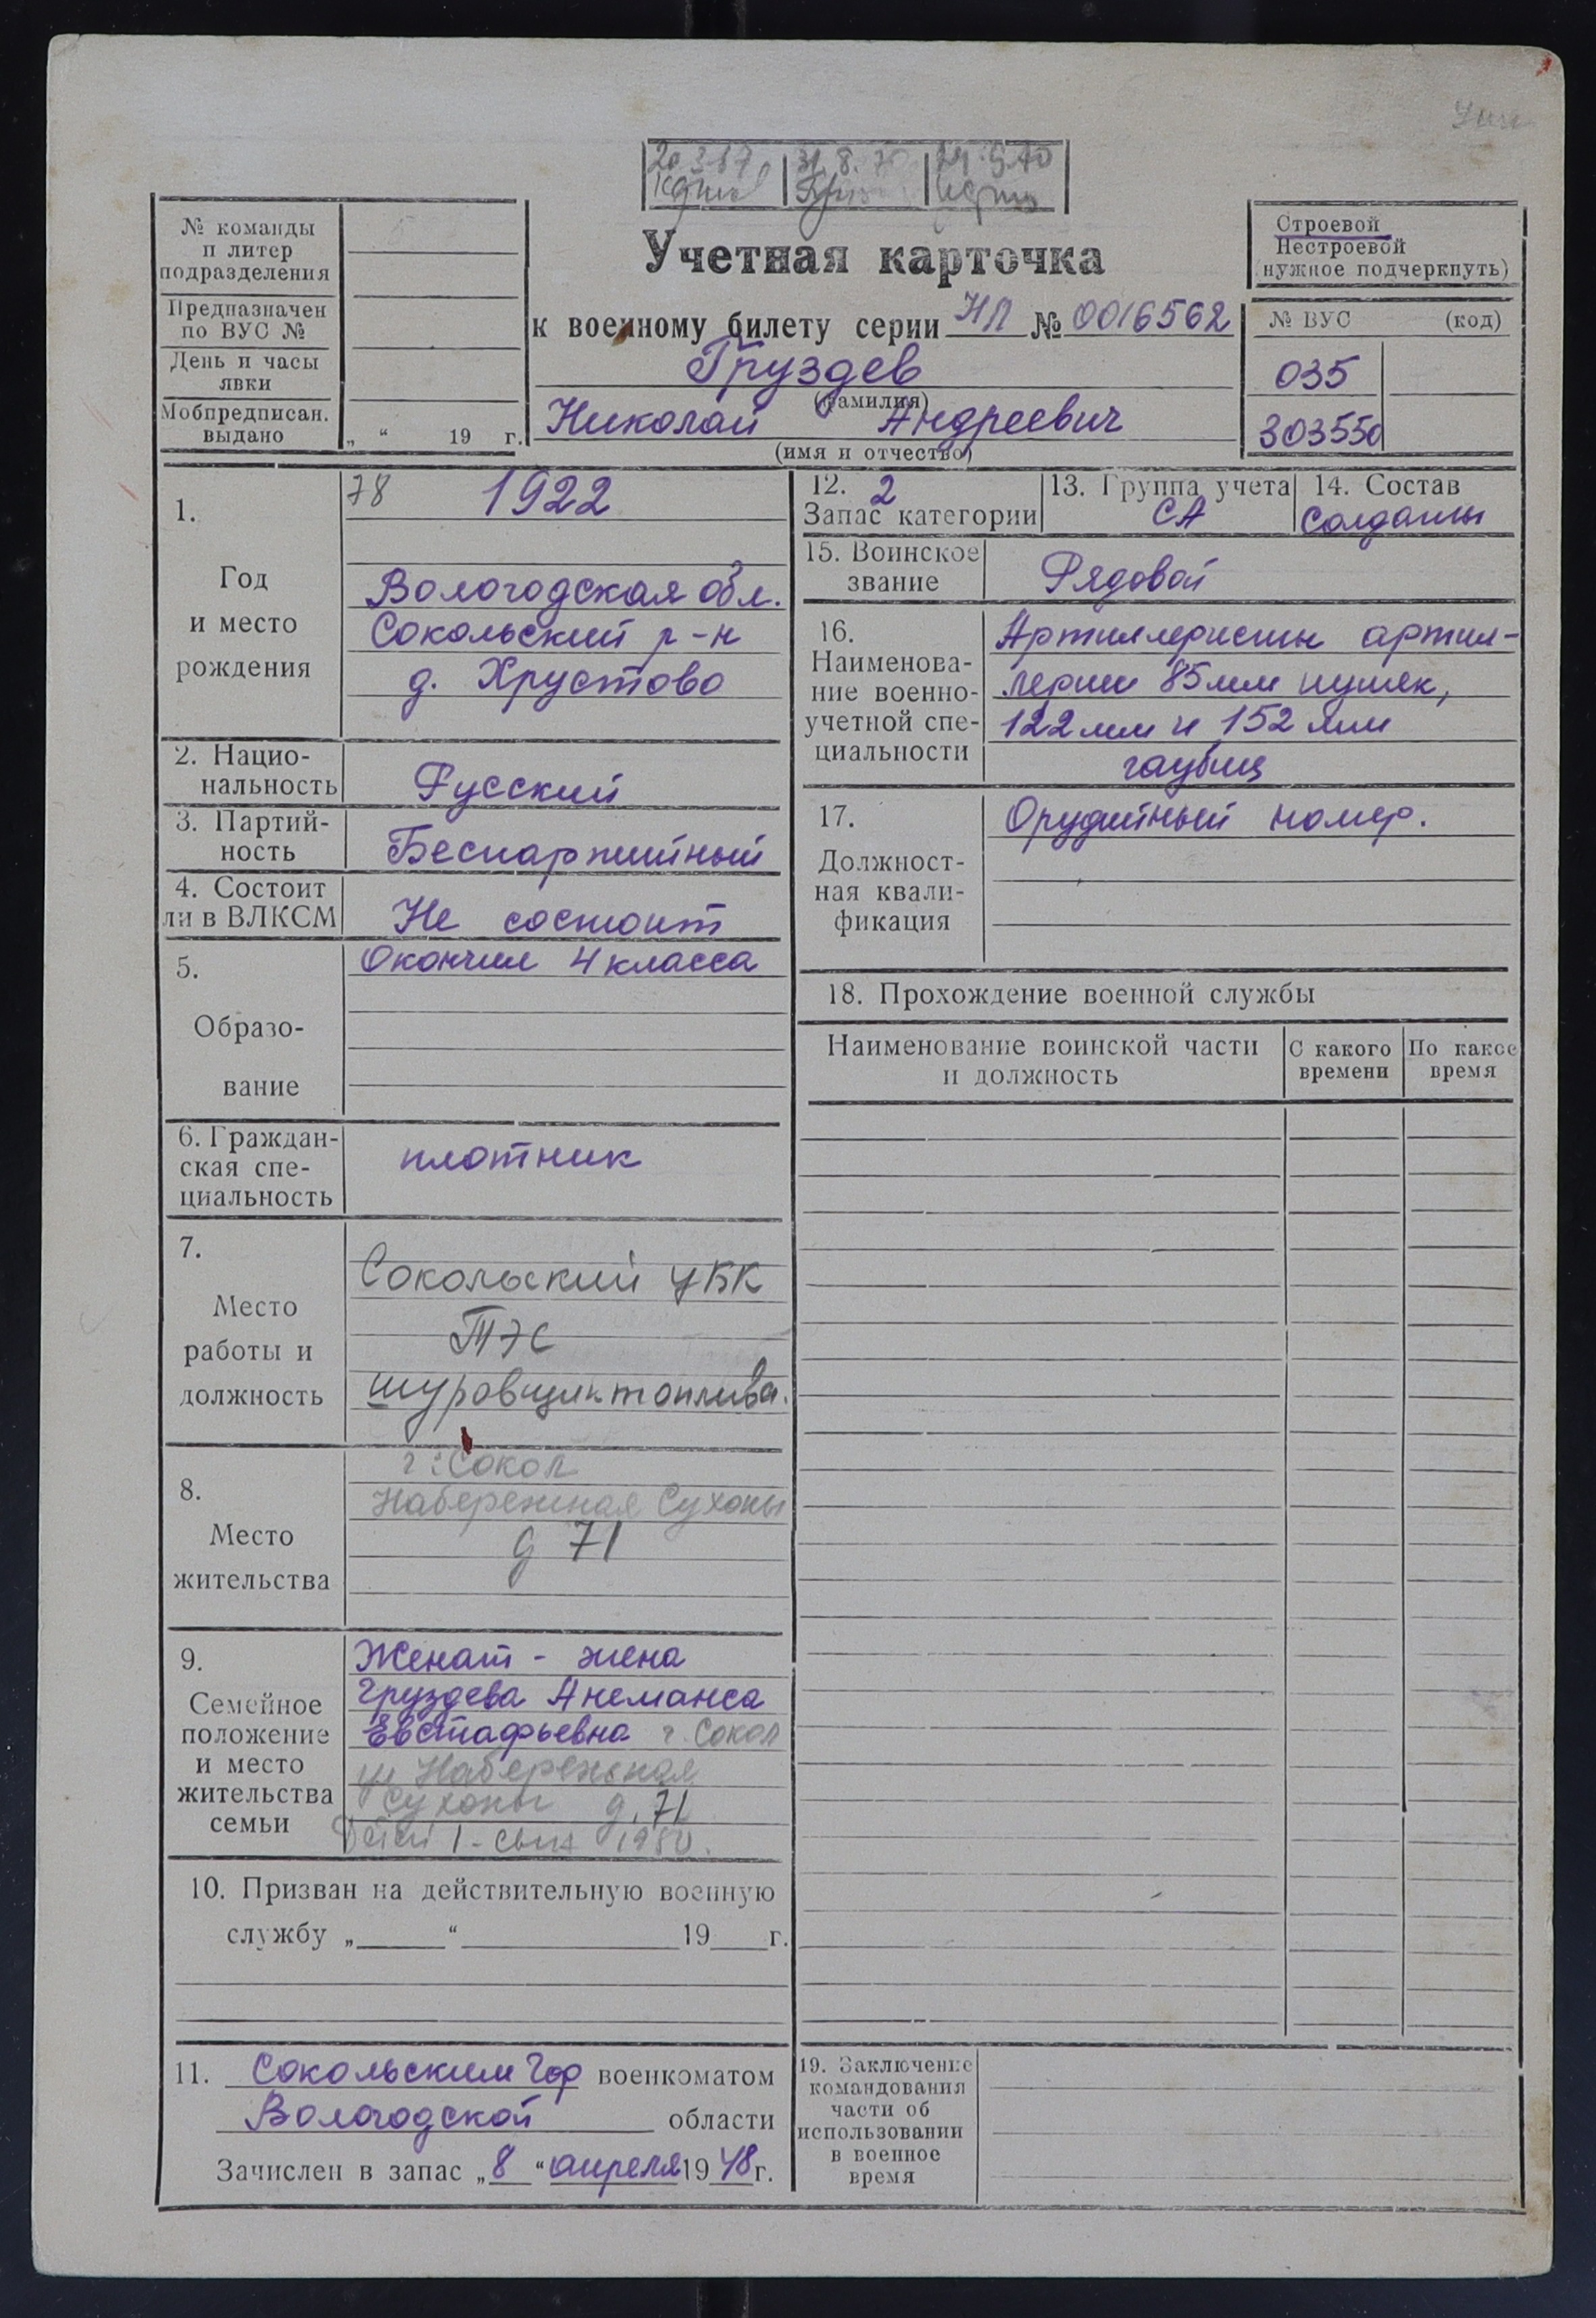 31.8.70
№ команды
и литер
подразделения
Предназначен
по ВУС №
День и часы
явки
Мобпредписан.
выдано
„ “ 19 г.
Учетная карточка
к военному билету серии НЛ № 0016562
Груздев
(фамилия)
Николай Андреевич
(имя и отчество)
Строевой
Нестроевой
(нужное подчеркнуть)
№ ВУС (код)
035
303550
1.
Год
и место
рождения
78 1922
Вологодская обл.
Сокольский р-н
д. Хрустово
2. Нацио-
нальность
Русский
3. Партий-
ность
Беспартийный
4. Состоит
ли в ВЛКСМ
Не состоит
5.
Образо-
вание
Окончил 4 класса
6. Граждан-
ская спе-
циальность
плотник
7.
Место
работы и
должность
Сокольский ЦБК
ТЭС
шуровщик топлива.
8.
Место
жительства
г. Сокол
Набережная Сухоны
д 71
9.
Семейное
положение
и место
жительства
семьи
Женат - жена
Груздева
Евстафьевна г. Сокол
ул Набережная
Сухоны д. 71
Детей 1 - сын 1950.
10. Призван на действительную военную
службу „ “ 19 г.
11. Сокольским Гор военкоматом
Вологодской области
Зачислен в запас „8“ апреля 1948 г.
12. 2
Запас категории
13. Группа учета
СА
14. Состав
Солдаты
15. Воинское
звание
Рядовой
16.
Наименова-
ние военно-
учетной спе-
циальности
Артиллеристы артил-
лерии 85 мм пушек,
122 мм и 152 мм
гаубиц
17.
Должност-
ная квали-
фикация
Орудийный номер.
18. Прохождение военной службы
Наименование воинской части
и должность
С какого
времени
По какое
время
19. Заключение
командования
части об
использовании
в военное
время